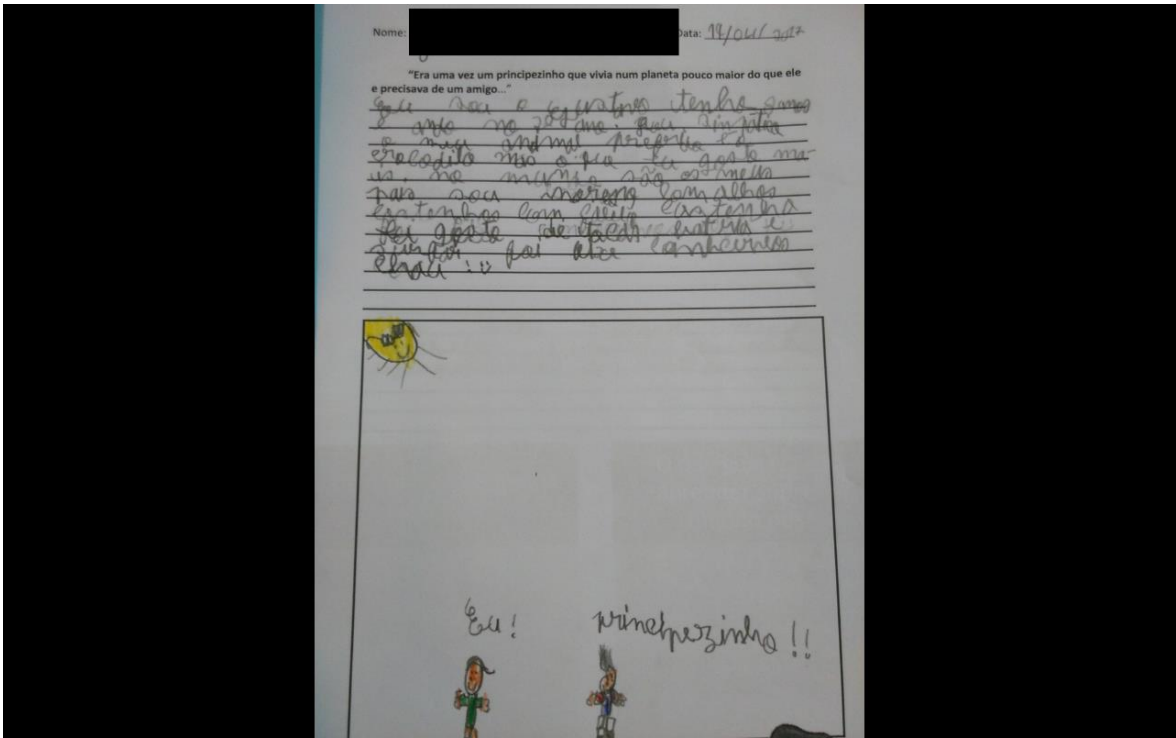 Nome: Data: 19/04/2017
"Era uma vez um principezinho que vivia num planeta pouco maior do que ele
e precisava de um amigo..."
Eu sou o tenho anos
e ando no 2º ano. Sou simpático
o meu animal preferido é o
crocodilo mas o que eu gosto ma-
is no mundo são os meus
pais sou moreno com olhos
castenhos com castenho
Eu gosto de tocar bateria e
surfar foi conhecerso
chau :))
Eu!
principezinho!!